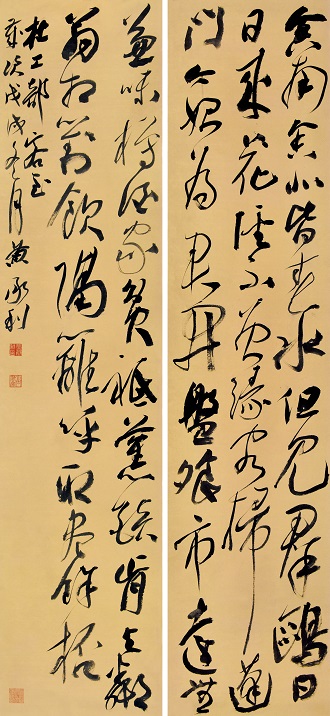 舍南舍北皆春水但見群鷗日
日來花徑不曾緣客掃蓬
門今始為君開盤飧市遠無
兼味樽酒家貧祗舊醅肯與鄰
翁相對飲隔籬呼取盡餘杯
杜工部客至
歲次戊戌冬月黃承利